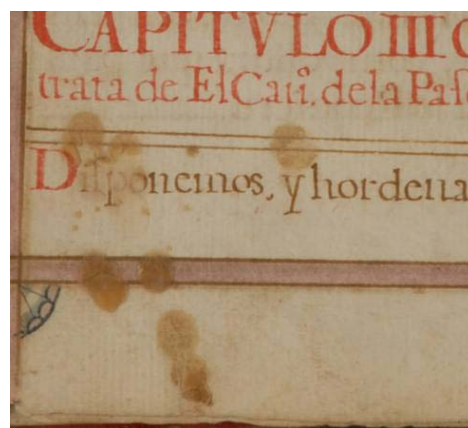 CAPITVLO III
trata de El Cavi.º de la Pas
Disponemos, y hordena